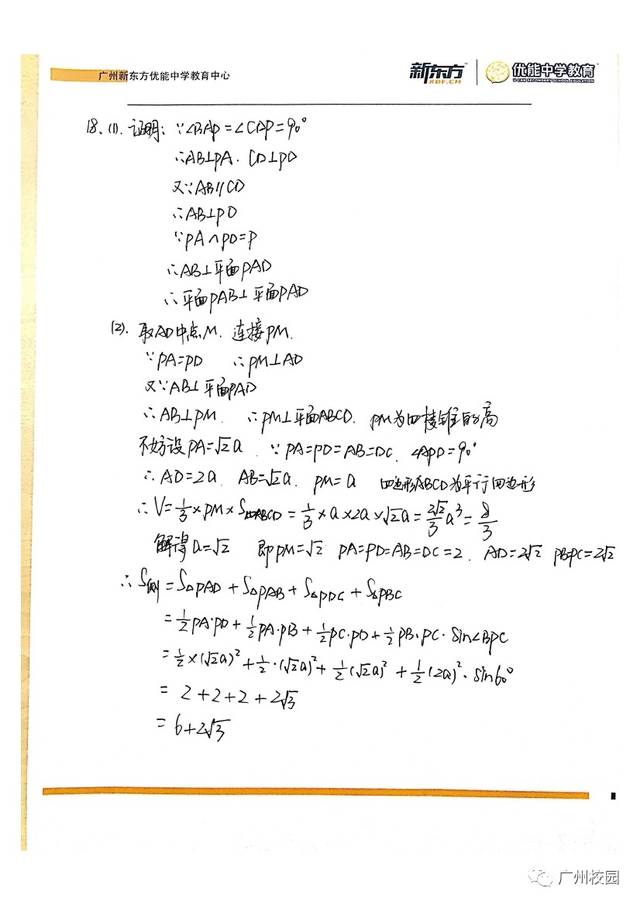 广州新东方优能中学教育中心
新东方 XDF.CN 优能中学教育 U-CAN SECONDARY SCHOOL EDUCATION
18、(1). 证明: ∵∠BAP=∠CDP=90°
∴AB⊥PA. CD⊥PD
又∵AB∥CD
∴AB⊥PD
∵PA∩PD=P
∴AB⊥平面PAD
∴平面PAB⊥平面PAD
(2). 取AD中点M. 连接PM.
∵PA=PD ∴PM⊥AD
又∵AB⊥平面PAD
∴AB⊥PM. ∴PM⊥平面ABCD. PM为四棱锥的高
不妨设PA=√2a. ∵PA=PD=AB=DC. ∠APD=90°
∴AD=2a. AB=√2a. PM=a 四边形ABCD为平行四边形
∴V=1/3×PM×S▱ABCD=1/3×a×2a×√2a=2√2/3a³=8/3
解得a=√2 即PM=√2 PA=PD=AB=DC=2. AD=2√2 PB=PC=2√2
∴S侧=S△PAD+S△PAB+S△PDC+S△PBC
=1/2PA·PD+1/2PA·PB+1/2PC·PD+1/2PB·PC·sin∠BPC
=1/2×(√2a)²+1/2·(√2a)²+1/2(√2a)²+1/2(2a)²·sin60°
=2+2+2+2√3
=6+2√3
广州校园